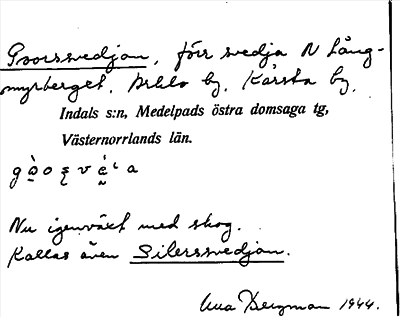 Goorssvedjan, förr svedja N Lång-
myrberget. by, Kärsta by,
Indals s:n, Medelpads östra domsaga tg,
Västernorrlands län.
Nu igenväxt med skog.
Kallas även Silerssvedjan.
Bergman 1944.